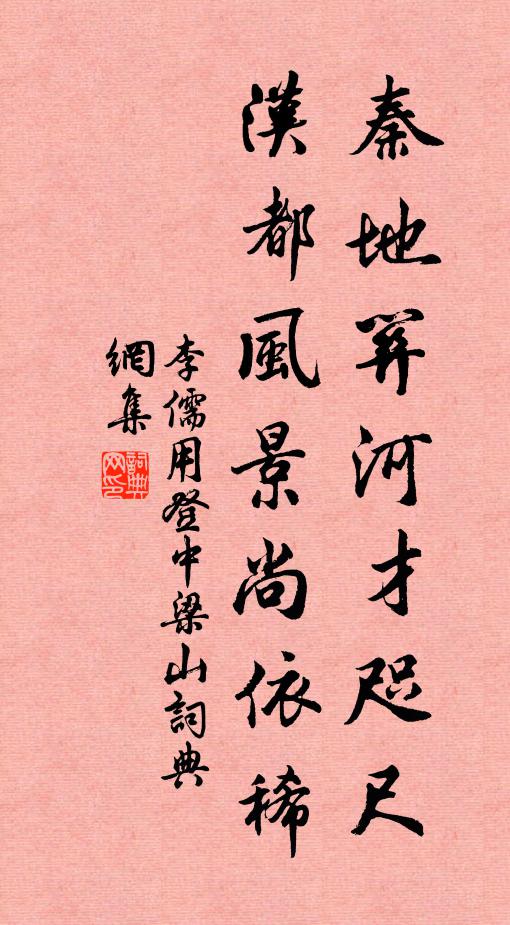 秦地關河才咫尺
漢都風景尚依稀
李儒用登中梁山詞典
網集
詞典網印